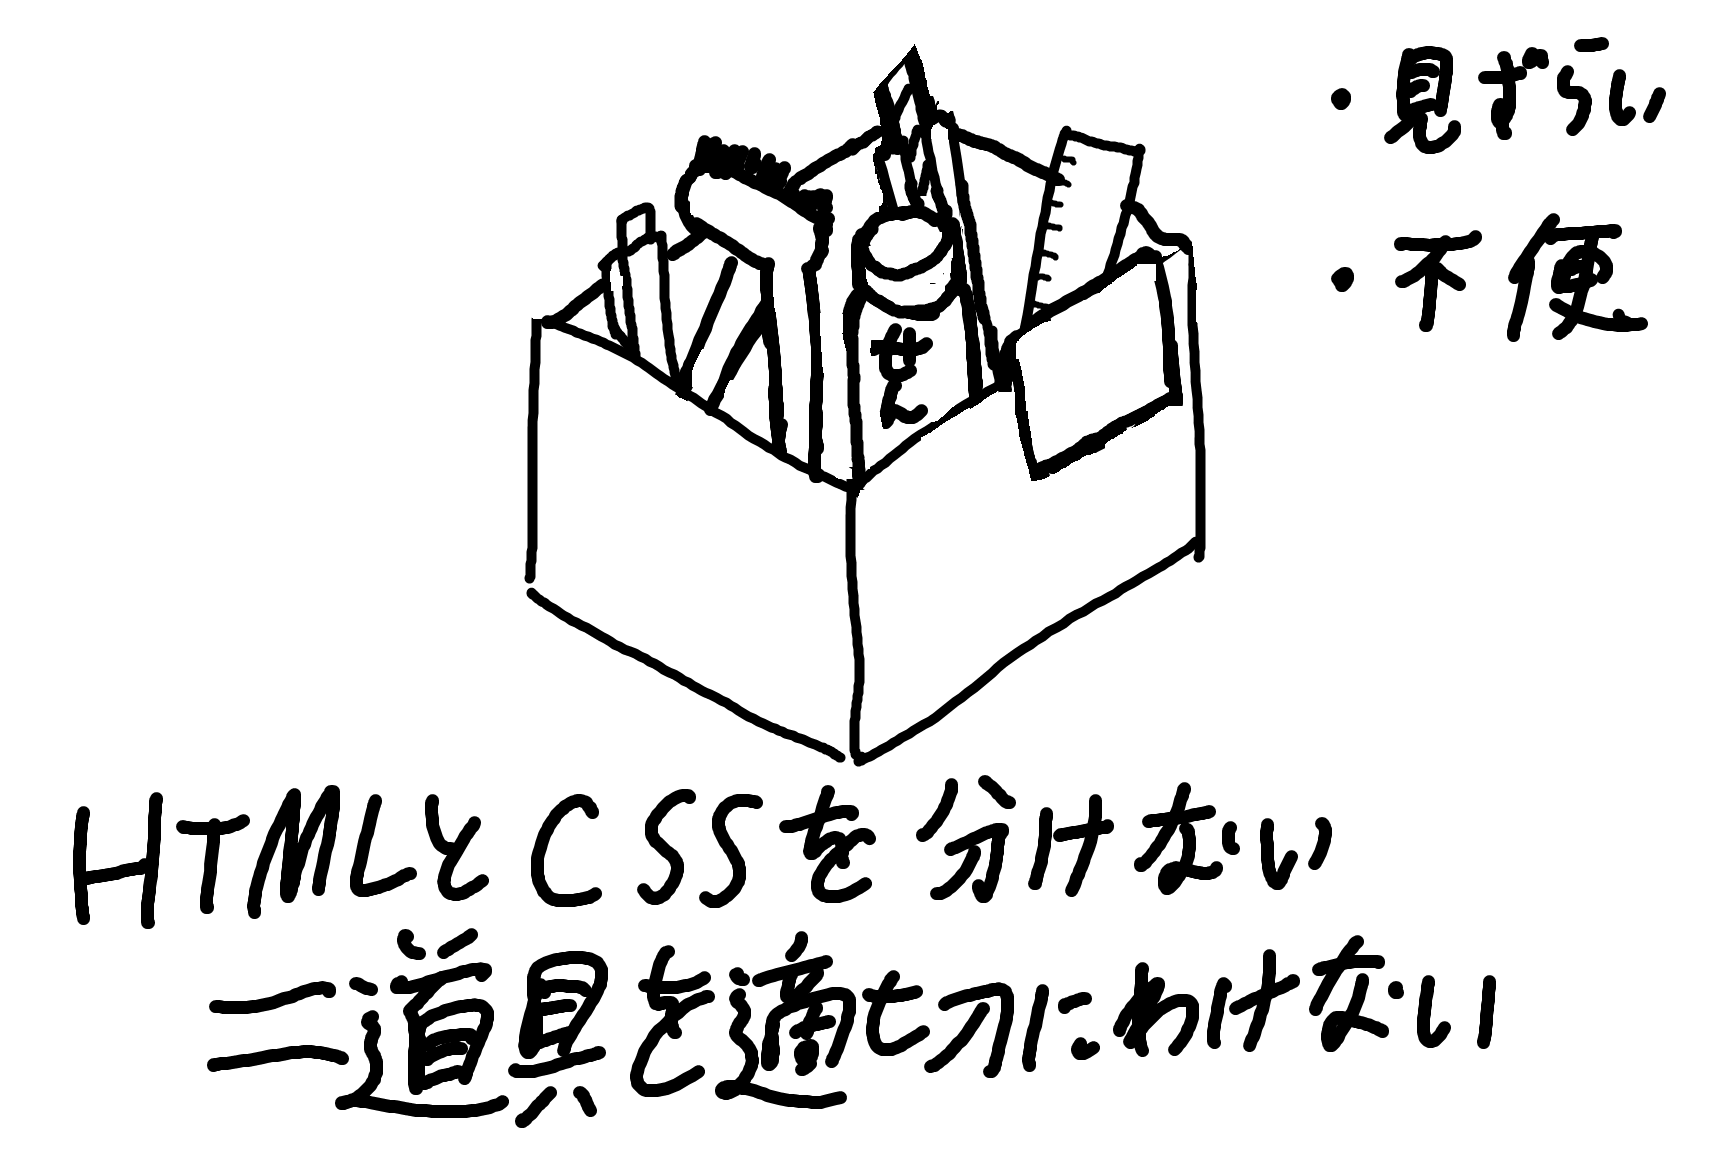 ・見ずらい
・不便
せん
HTMLとCSSを分けない
=道具を適切にわけない